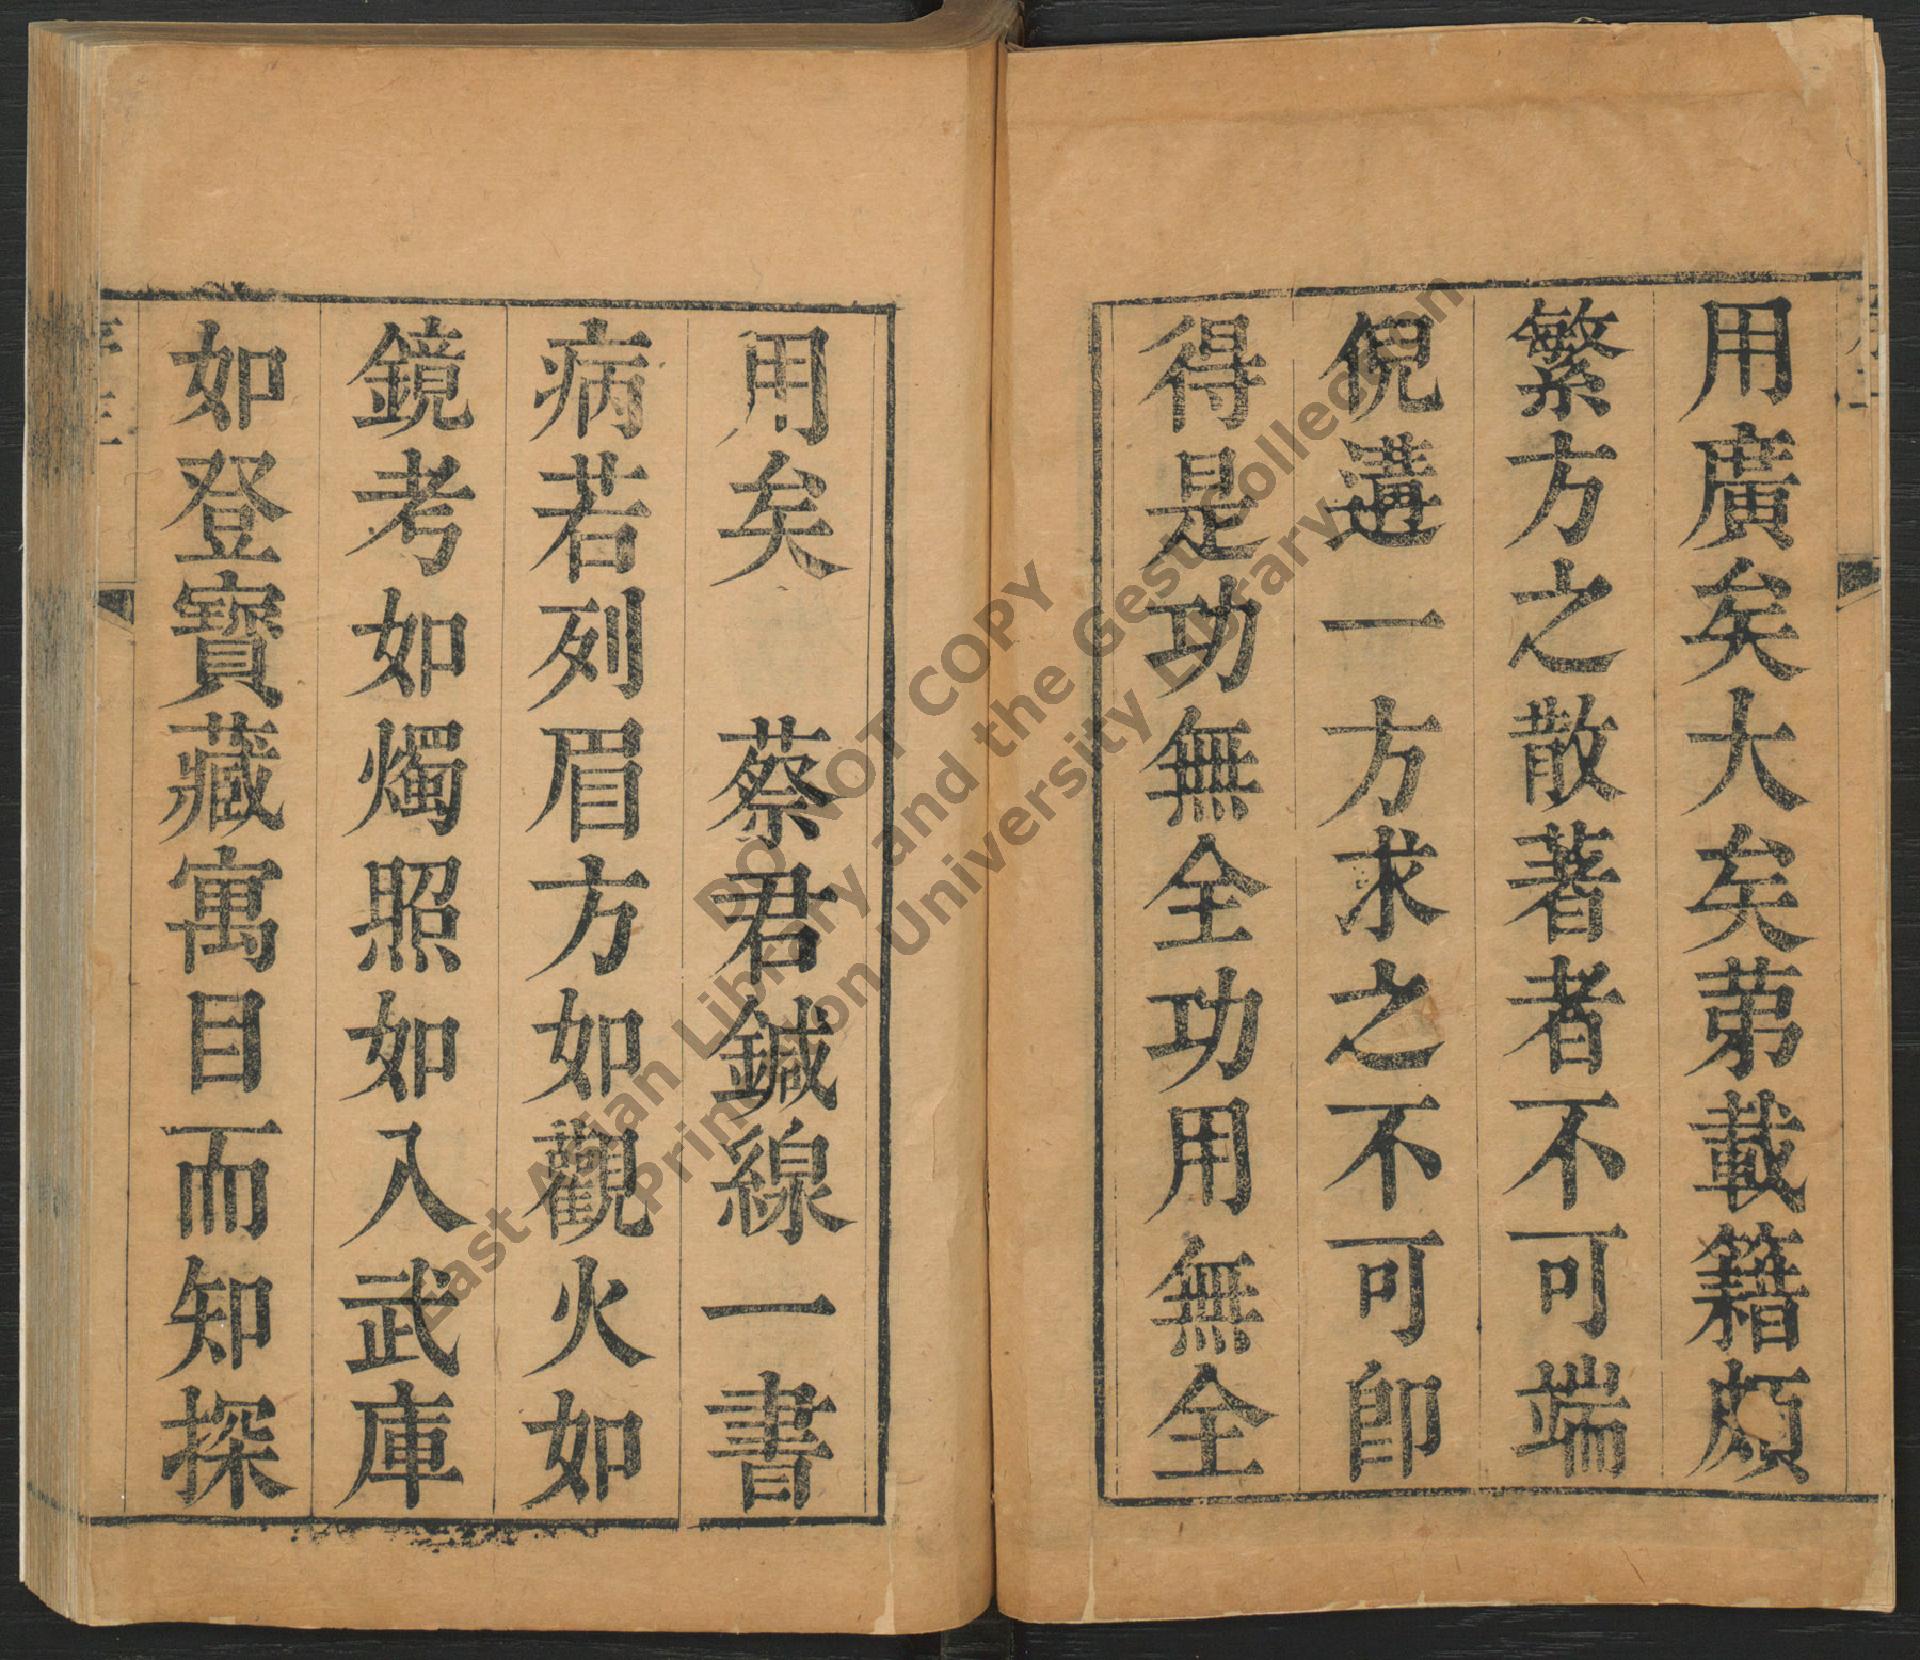 用廣矣大矣苐載籍頗
繁方之散著者不可端
倪遘一方求之不可卽
得是功無全功用無全
用矣　蔡君鍼線一書
病若列眉方如觀火如
鏡考如燭照如入武庫
如登寶藏寓目而知探
DO NOT COPY
East Asian Library and the Gest Collection
Princeton University Library